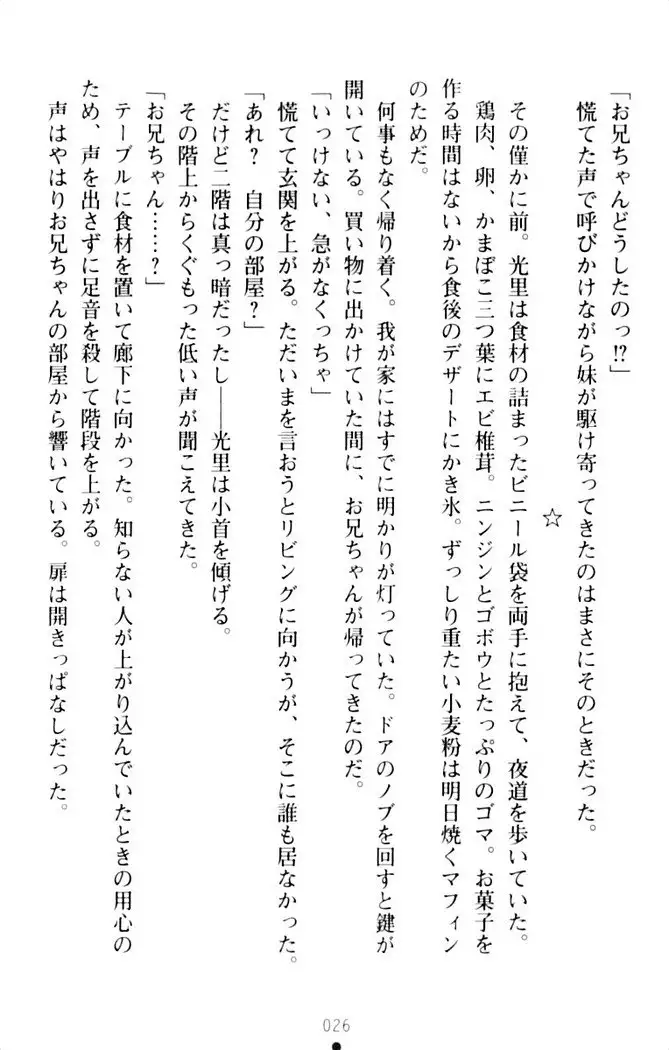 「お兄ちゃんどうしたのっ!?」
慌てた声で呼びかけながら妹が駆け寄ってきたのはまさにそのときだった。
☆
その僅かに前。光里は食材の詰まったビニール袋を両手に抱えて、夜道を歩いていた。
鶏肉、卵、かまぼこ三つ葉にエビ椎茸。ニンジンとゴボウとたっぷりのゴマ。お菓子を
作る時間はないから食後のデザートにかき氷。ずっしり重たい小麦粉は明日焼くマフィン
のためだ。
何事もなく帰り着く。我が家にはすでに明かりが灯っていた。ドアのノブを回すと鍵が
開いている。買い物に出かけていた間に、お兄ちゃんが帰ってきたのだ。
「いっけない、急がなくっちゃ」
慌てて玄関を上がる。ただいまを言おうとリビングに向かうが、そこに誰も居なかった。
「あれ？　自分の部屋？」
だけど二階は真っ暗だったし――光里は小首を傾げる。
その階上からくぐもった低い声が聞こえてきた。
「お兄ちゃん……？」
テーブルに食材を置いて廊下に向かった。知らない人が上がり込んでいたときの用心の
ため、声を出さずに足音を殺して階段を上がる。
声はやはりお兄ちゃんの部屋から響いている。扉は開きっぱなしだった。
026